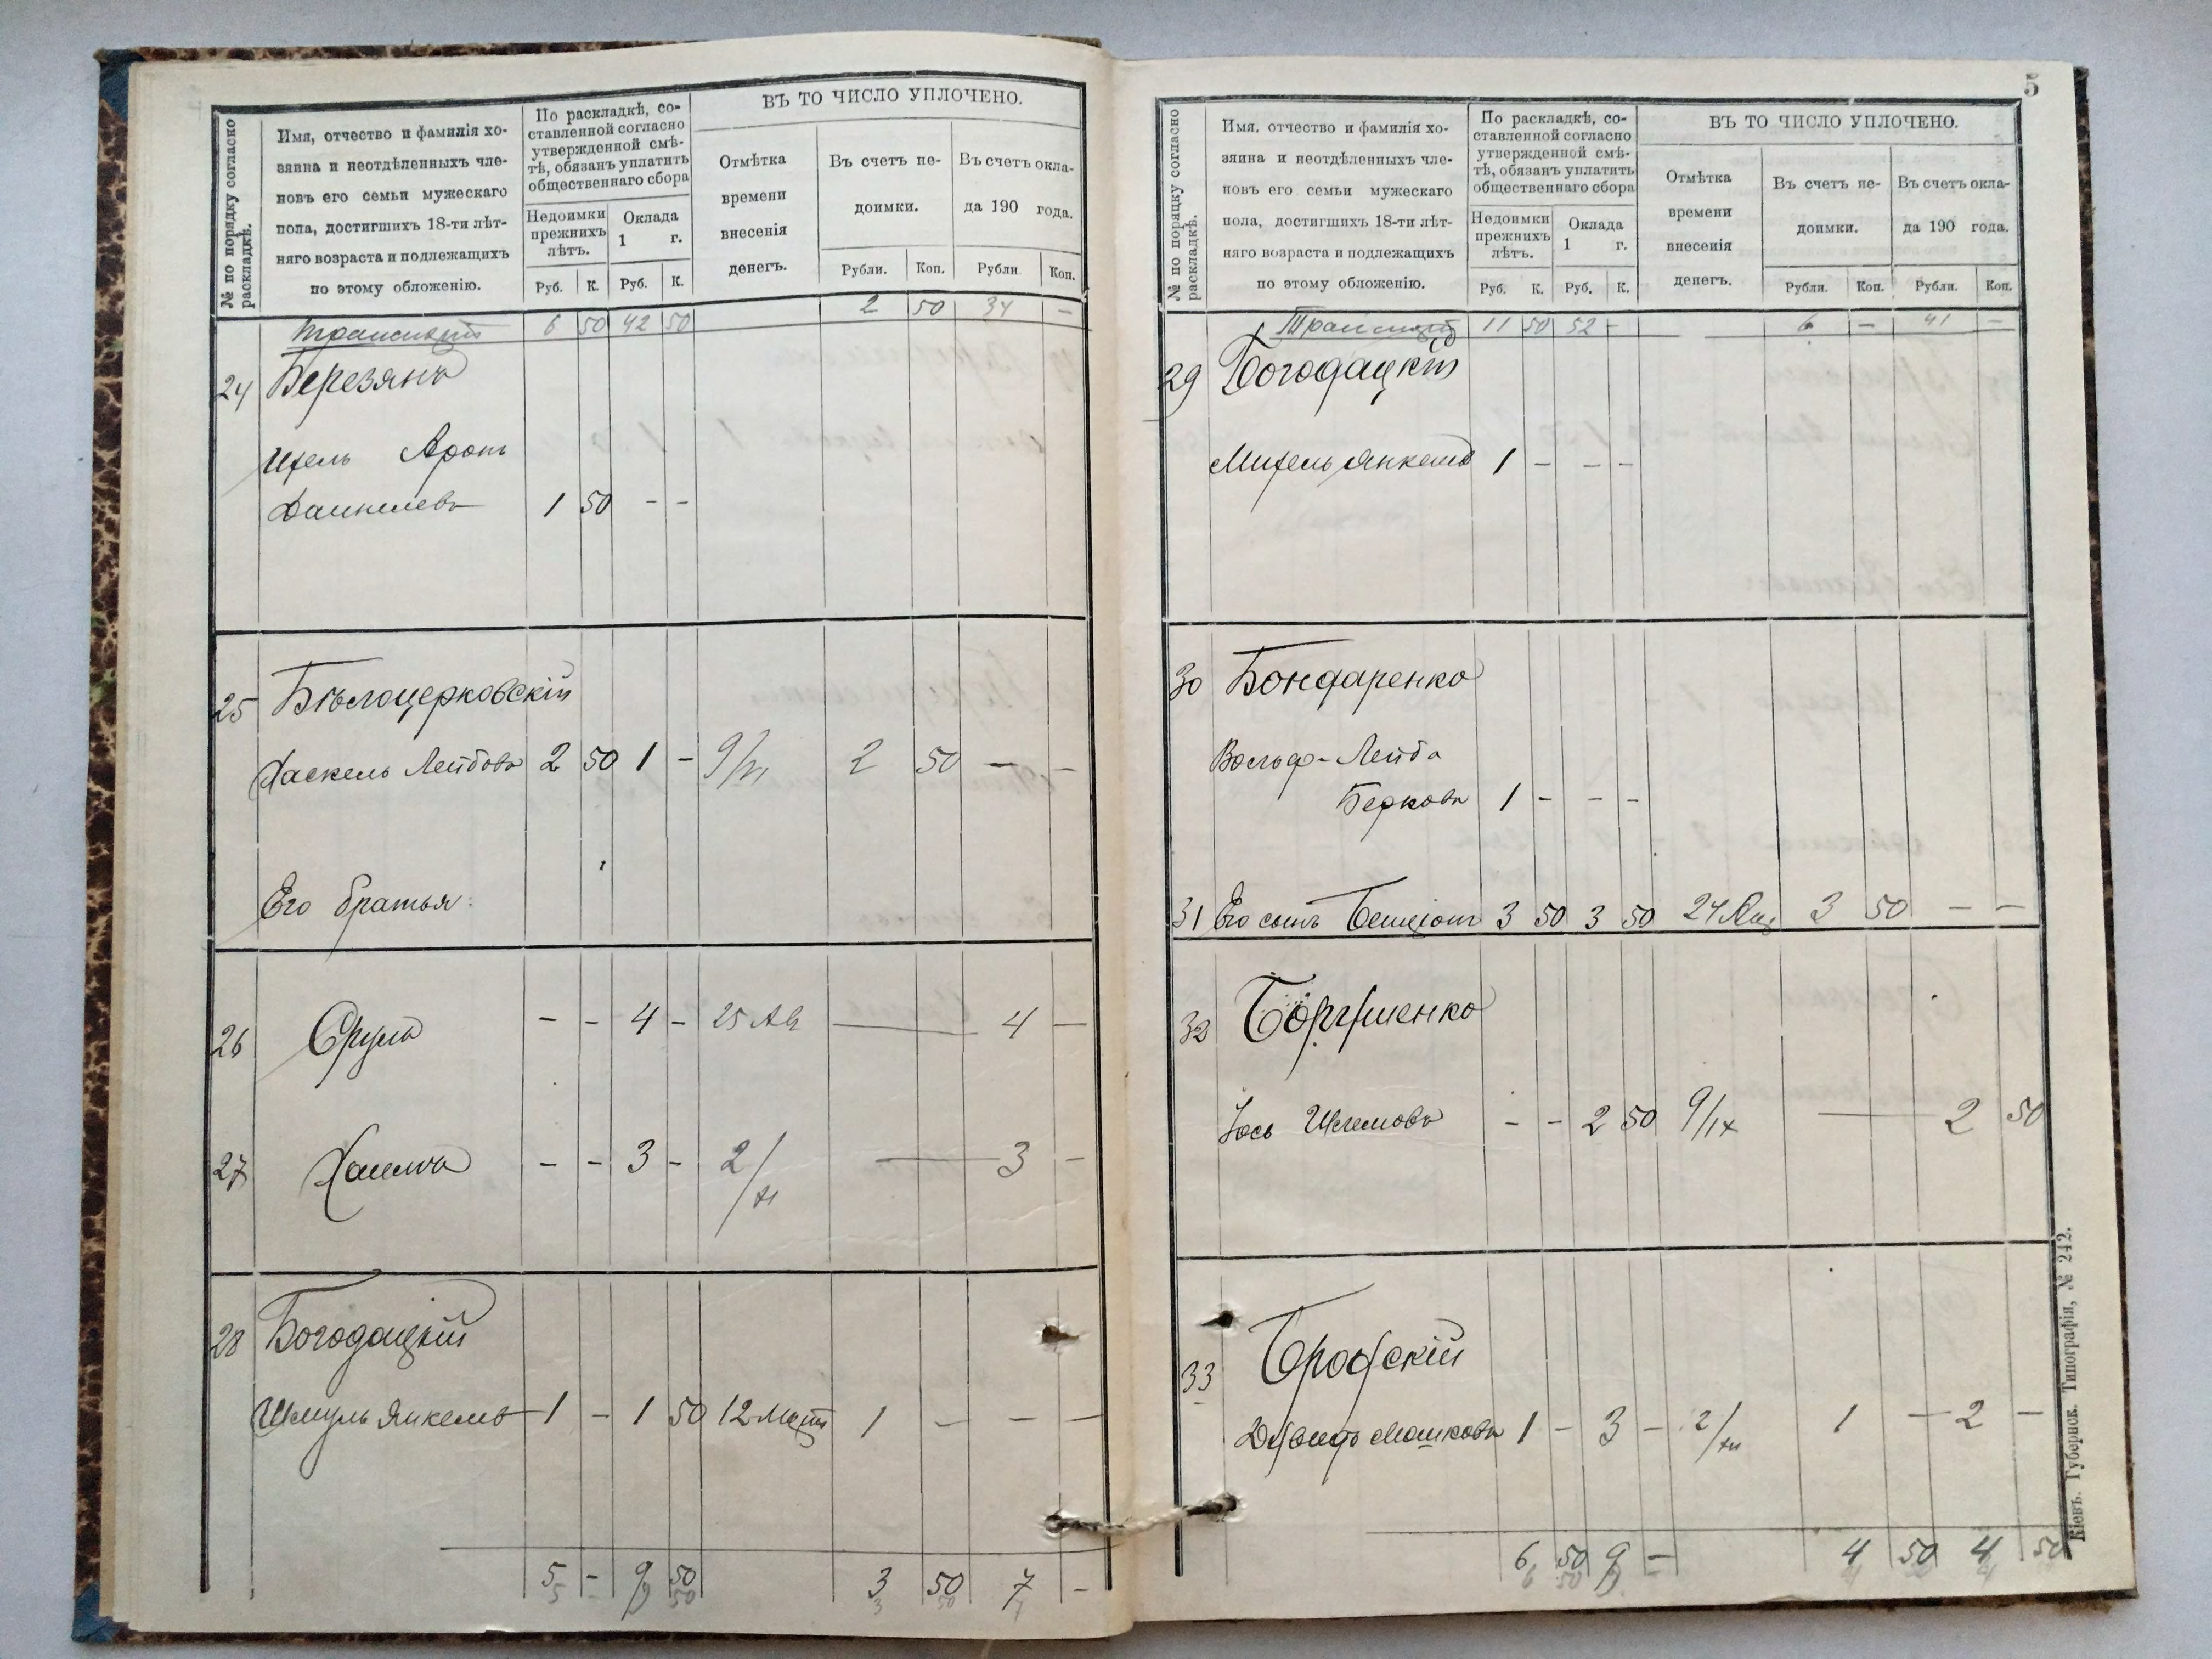 № по порядку согласно
раскладкѣ.
Имя, отчество и фамилія хо-
зяина и неотдѣленныхъ чле-
новъ его семьи мужескаго
пола, достигшихъ 18-ти лѣт-
няго возраста и подлежащихъ
по этому обложенію.
По раскладкѣ, со-
ставленной согласно
утвержденной смѣ-
тѣ, обязанъ уплатить
общественнаго сбора
Недоимки
прежнихъ
лѣтъ.
Оклада
1 г.
Руб. К. Руб. К.
ВЪ ТО ЧИСЛО УПЛОЧЕНО.
Отмѣтка
времени
внесенія
денегъ.
Въ счетъ не-
доимки.
Въ счетъ окла-
да 190 года.
Рубли. Коп. Рубли Коп.
Транспортъ 6 50 42 50 2 50 34 —
24 Березянъ
Ицель Аронъ
1 50 - -
25 Бѣлоцерковскій
Хаскель Лейбовъ 2 50 1 - 9/VI 2 50 — —
Его братья:
26 Сруль - - 4 - 25 Ав — 4 —
27 - - 3 - 2/XI — 3 -
28 Богодацкій
Шмуль Янкелевъ 1 - 1 50 12 1 — — —
5 - 9 50 3 50 7 -
5
№ по порядку согласно
раскладкѣ.
Имя, отчество и фамилія хо-
зяина и неотдѣленныхъ чле-
новъ его семьи мужескаго
пола, достигшихъ 18-ти лѣт-
няго возраста и подлежащихъ
по этому обложенію.
По раскладкѣ, со-
ставленной согласно
утвержденной смѣ-
тѣ, обязанъ уплатить
общественнаго сбора
Недоимки
прежнихъ
лѣтъ.
Оклада
1 г.
Руб. К. Руб. К.
ВЪ ТО ЧИСЛО УПЛОЧЕНО.
Отмѣтка
времени
внесенія
денегъ.
Въ счетъ не-
доимки.
Въ счетъ окла-
да 190 года.
Рубли. Коп. Рубли. Коп.
Транспортъ 11 50 52 - 6 — 41 —
29 Богодацкій
Михель Янкелевъ 1 - - -
30 Бондаренко
Вольф-Лейба
Берковъ 1 - - -
31 Его сынъ Бенціонъ 3 50 3 50 24 Янв 3 50 — —
32
Іось - - 2 50 9/IX — 2 50
33 Бродскій
Давидъ Мошковъ 1 - 3 - 2/XII 1 — 2 —
6 50 9 — 4 50 4 50
Кіевъ. Губернск. Типографія, № 242.